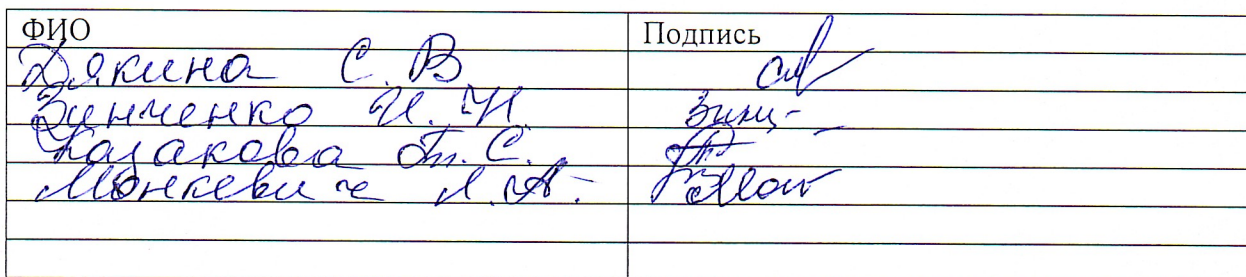 ФИО Подпись
Дякина С. В.
Зинченко И. Н. Зинч-
Казакова Т. С.
Монкевич Л. А.